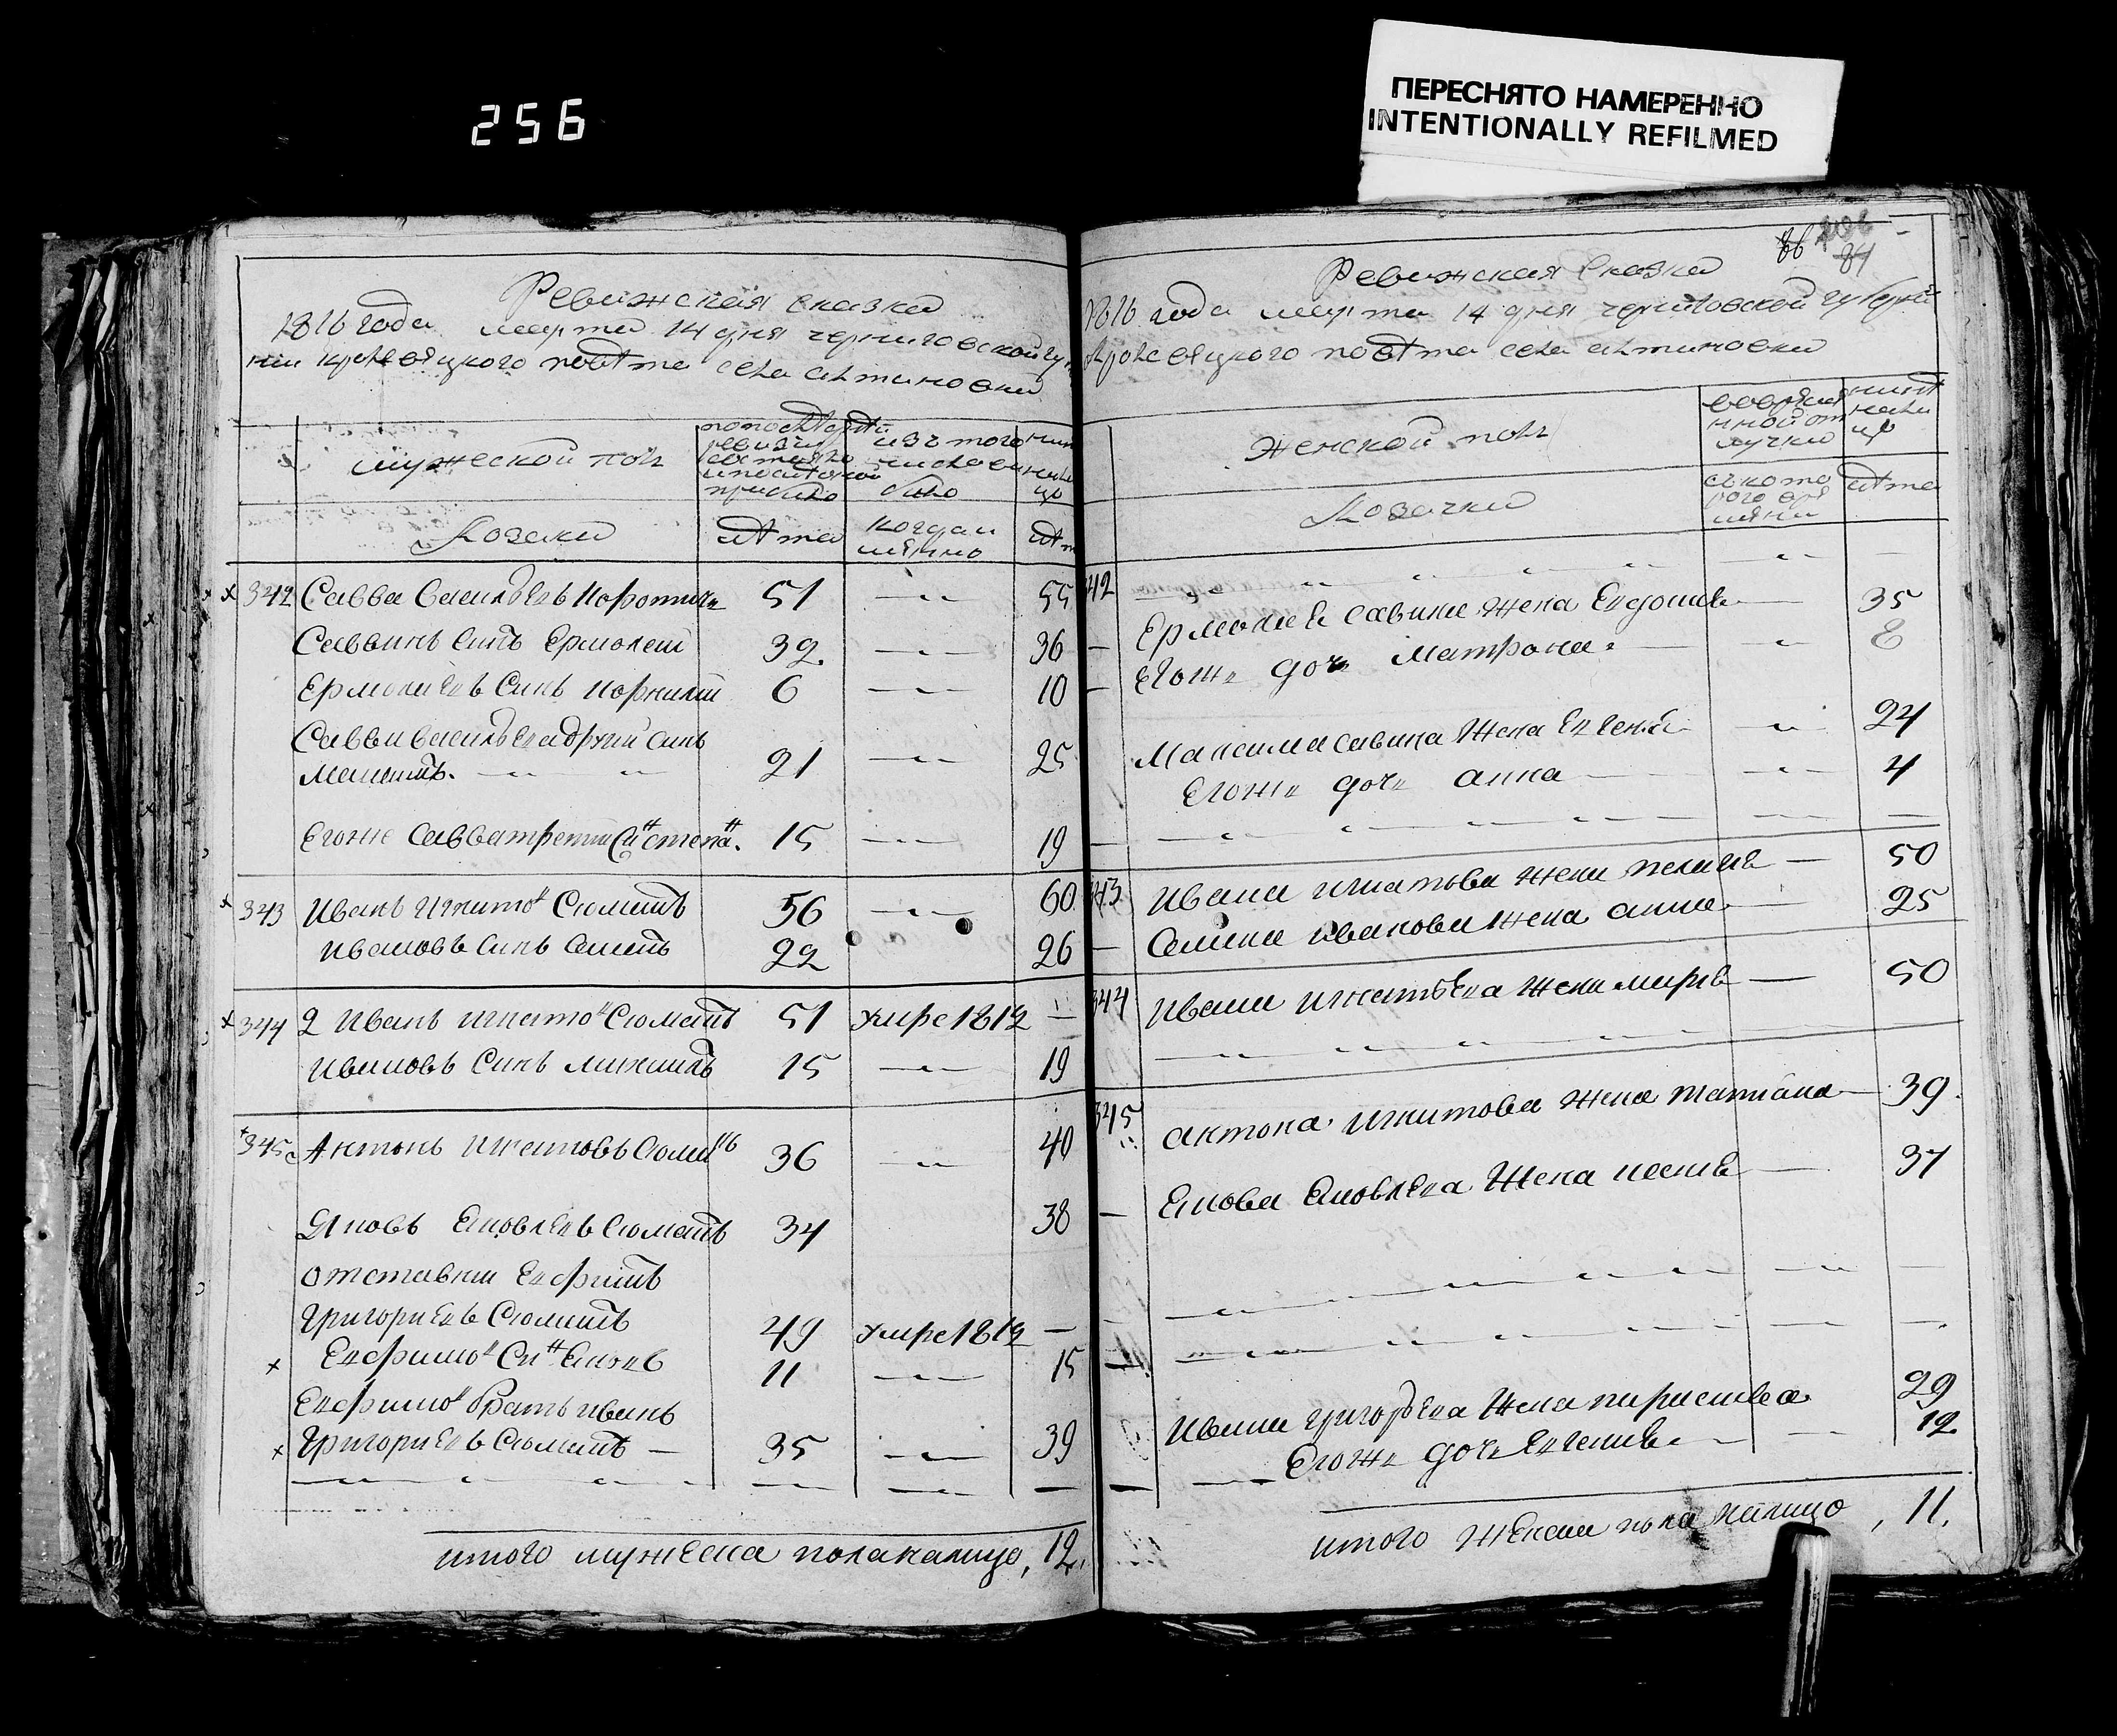 256
ПЕРЕСНЯТО НАМЕРЕННО
INTENTIONALLY REFILMED
Ревижская сказка
1816 года марта 14 дня черниговской гу
нии кролевецкого повѣта села алтиновки
мужеской полъ
изъ того
числа
было
Козаки
лѣта
когда
лѣт
342 Савва Васильевъ Коротич 51 55
Саввинъ Синъ Ермолай 32 36
Ермолаевъ Синъ Корнилий 6 10
Савви василева другий синъ
Максимъ. 21 25
Егоже Савва третий Сн степа. 15 19
343 Иванъ Игнато Сюмать 56 60
Ивановъ Синъ Семенъ 22 26
344 2 Иванъ игнато Сюмать 51 умре 1812
Ивановъ Синъ михаилъ 15 19
345 Антонъ Игнатовъ Сюма 36 40
Яковъ Яковлевъ Сюмать 34 38
отставни Ефимъ
Григориевъ Сюмать 49 умре 1812
Ефимо Сн 11 15
Ефимо братъ иванъ
Григориевъ Сюмать 35 39
итого мужеска пола налицо, 12.
86 84
Ревижская Сказка
1816 года марта 14 дня черниговской губерни
Кролевецкого повѣта села алтиновки
Женской полъ
лѣта
Козачки
42
Ермолая савина жена Евдокия 35
Егоже доч Матрона 8
Максима савина Жена Евгения 24
Егоже доч анна 4
43 Ивана игнатова жена 50
Семена иванова жена анна 25
344 Ивана игнатьева жена мария 50
345 антона игнатова жена татиана 39.
Якова Яковлева Жена 37
Ивана григорьева Жена параскевиа 29
Егоже доч Евгения 12.
итого Женска пола налицо, 11.